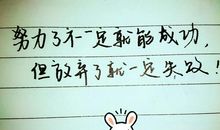 努力了不一定就能成功，
但放弃了就一定失败！